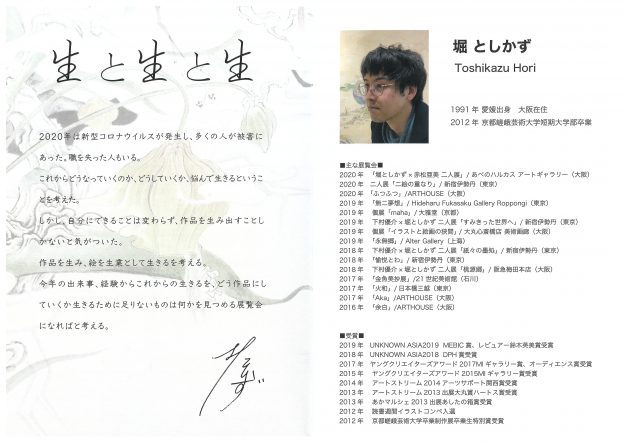 生と生と生
2020年は新型コロナウイルスが発生し、多くの人が被害に
あった。職を失った人もいる。
これからどうなっていくのか、どうしていくか、悩んで生きるというこ
とを考えた。
しかし、自分にできることは変わらず、作品を生み出すことし
かないと気がついた。
作品を生み、絵を生業として生きるを考える。
今年の出来事、経験からこれからの生きるを、どう作品にし
ていくか生きるために足りないものは何かを見つめる展覧会
になればと考える。
堀 としかず
Toshikazu Hori
1991年 愛媛出身 大阪在住
2012年 京都嵯峨芸術大学短期大学部卒業
■主な展覧会■
2020年 「堀としかず×赤松亜美 二人展」/ あべのハルカス アートギャラリー（大阪）
2020年 二人展「二絵の重なり」/ 新宿伊勢丹（東京）
2020年 「ふつふつ」/ARTHOUSE（大阪）
2019年 「無二夢想」/ Hideharu Fukasaku Gallery Roppongi（東京）
2019年 個展「maha」/ 大雅堂（京都）
2019年 下村優介×堀としかず 二人展「すみきった世界へ」/ 新宿伊勢丹（東京）
2019年 個展「イラストと絵画の狭間」/ 大丸心斎橋店 美術画廊（大阪）
2019年 「永無郷」/ Alter Gallery（上海）
2018年 下村優介×堀としかず 二人展「紙々の墨知」/ 新宿伊勢丹（東京）
2018年 「愉悦とわ」/ 新宿伊勢丹（東京）
2018年 下村優介×堀としかず 二人展「桃源郷」/ 阪急梅田本店（大阪）
2017年 「金魚美抄展」/21世紀美術館（石川）
2017年 「火和」/ 日本橋三越（東京）
2017年 「Aka」/ARTHOUSE（大阪）
2016年 「余白」/ARTHOUSE（大阪）
■受賞■
2019年 UNKNOWN ASIA2019 MEBIC賞、レビュアー鈴木英美賞受賞
2018年 UNKNOWN ASIA2018 DPH賞受賞
2017年 ヤングクリエイターズアワード2017MIギャラリー賞、オーディエンス賞受賞
2015年 ヤングクリエイターズアワード2015MIギャラリー賞受賞
2014年 アートストリーム2014アーツサポート関西賞受賞
2013年 アートストリーム2013出展大丸賞ハートス賞受賞
2013年 あかマルシェ2013出展あしたの箱賞受賞
2012年 読書週間イラストコンペ入選
2012年 京都嵯峨芸術大学卒業制作展卒業生特別賞受賞